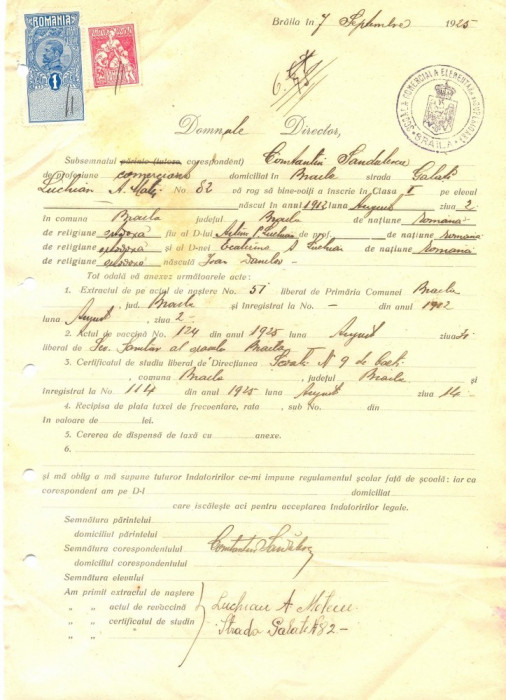 Brăila în 7 Septembre 1925
ROMANIA
1
ȘCOALA COMERCIALA ELEMENTARA
BRAILA
Domnule Director,
Subsemnatul părinte (tutore, corespondent) Constantin Sandulescu
de profesiune comerciant domiciliat în Braila strada Galati
No 82 vă rog să bine-voiți a înscrie în Clasa I pe elevul
Luchian A. născut în anul 1912 luna August ziua 2
în comuna Braila județul Braila de națiune Romana
de religiune ortodoxa fiu al D-lui Artin P. Luchian de prof. de națiune Romana
de religiune ortodoxa și al D-nei Ecaterina A Luchian de națiune Romana
de religiune ortodoxa născulă Ioan Danilov
Tot odală vă anexez următoarele acte:
1. Extractul de pe actul de naștere No 51 liberat de Primăria Comunei Braila
jud. Braila și înregistrat la No. — din anul 1912
luna August, ziua 2-
2. Actul de vaccină No 124 din anul 1925 luna August ziua
liberat de al orasului Braila
3. Certificatul de studiu liberat de Direcțiunea Scoalei N 9 de baeti
, comuna Braila, județul Braila și
înregistrat la No 114 din anul 1925 luna August ziua 14-
4. Recipisa de plata taxei de frecventare, rata , sub No. din
în valoare de lei.
5. Cererea de dispensă de taxă cu anexe.
6.
și mă oblig a mă supune tuturor îndatoririlor ce-mi impune regulamentul școlar față de școală: iar ca
corespondent am pe D-l domiciliat
care iscălește aci pentru acceptarea îndatoririlor legale.
Semnătura părintelui
domiciliul părintelui
Semnătura corespondentului Constantin
domiciliul corespondentului
Semnătura elevului
Am primit extractul de naștere
„ „ actul de revaccină Luchian A
„ „ certificatul de studiu Strada Galati N 82-
„ „